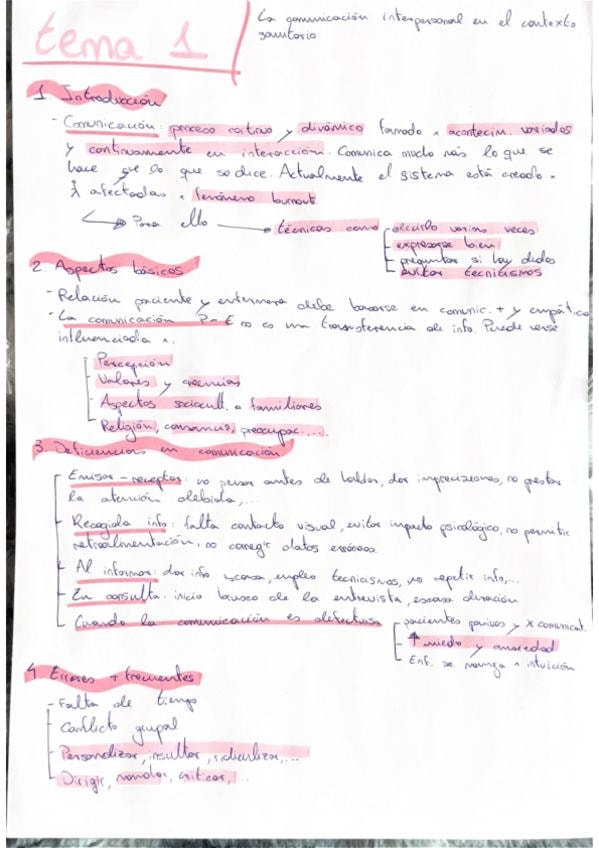 tema 1
La comunicación interpersonal en el contexto
sanitario
1. Introducción
- Comunicación: proceso continuo y dinámico formado x acontecim. variados
y continuamente en interacción. Comunica mucho más lo que se
hace que lo que se dice. Actualmente el sistema está creado x
afectadas x fenómeno burnout.
Para ello → técnicas como
decirlo varias veces
expresarse bien
preguntar si hay dudas
evitar tecnicismos
2. Aspectos básicos
- Relación paciente y enfermera debe basarse en comunic. + y empática
- La comunicación P-E no es una transferencia de info. Puede verse
influenciada x:
Percepción
Valores y creencias
Aspectos sociocult. o familiares
Religión, preocupac.,...
3. Deficiencias en comunicación
Emisor - receptor: no pensar antes de hablar, dar imprecisiones, no prestar
la atención debida,...
Recogida info: falta contacto visual, evitar impacto psicológico, no permitir
retroalimentación, no corregir datos erróneos.
Al informar: dar info escasa, empleo tecnicismos, no repetir info,...
En consulta: inicio brusco de la entrevista, escasa duración
Cuando la comunicación es defectuosa
pacientes pasivos y x comunicat.
↑ miedo y ansiedad
Enf. se maneja x intuición
4. Errores + frecuentes
- Falta de tiempo
- Conflicto grupal
- Personalizar, insultar, ridiculizar,...
- Dirigir, mandar, criticar,...